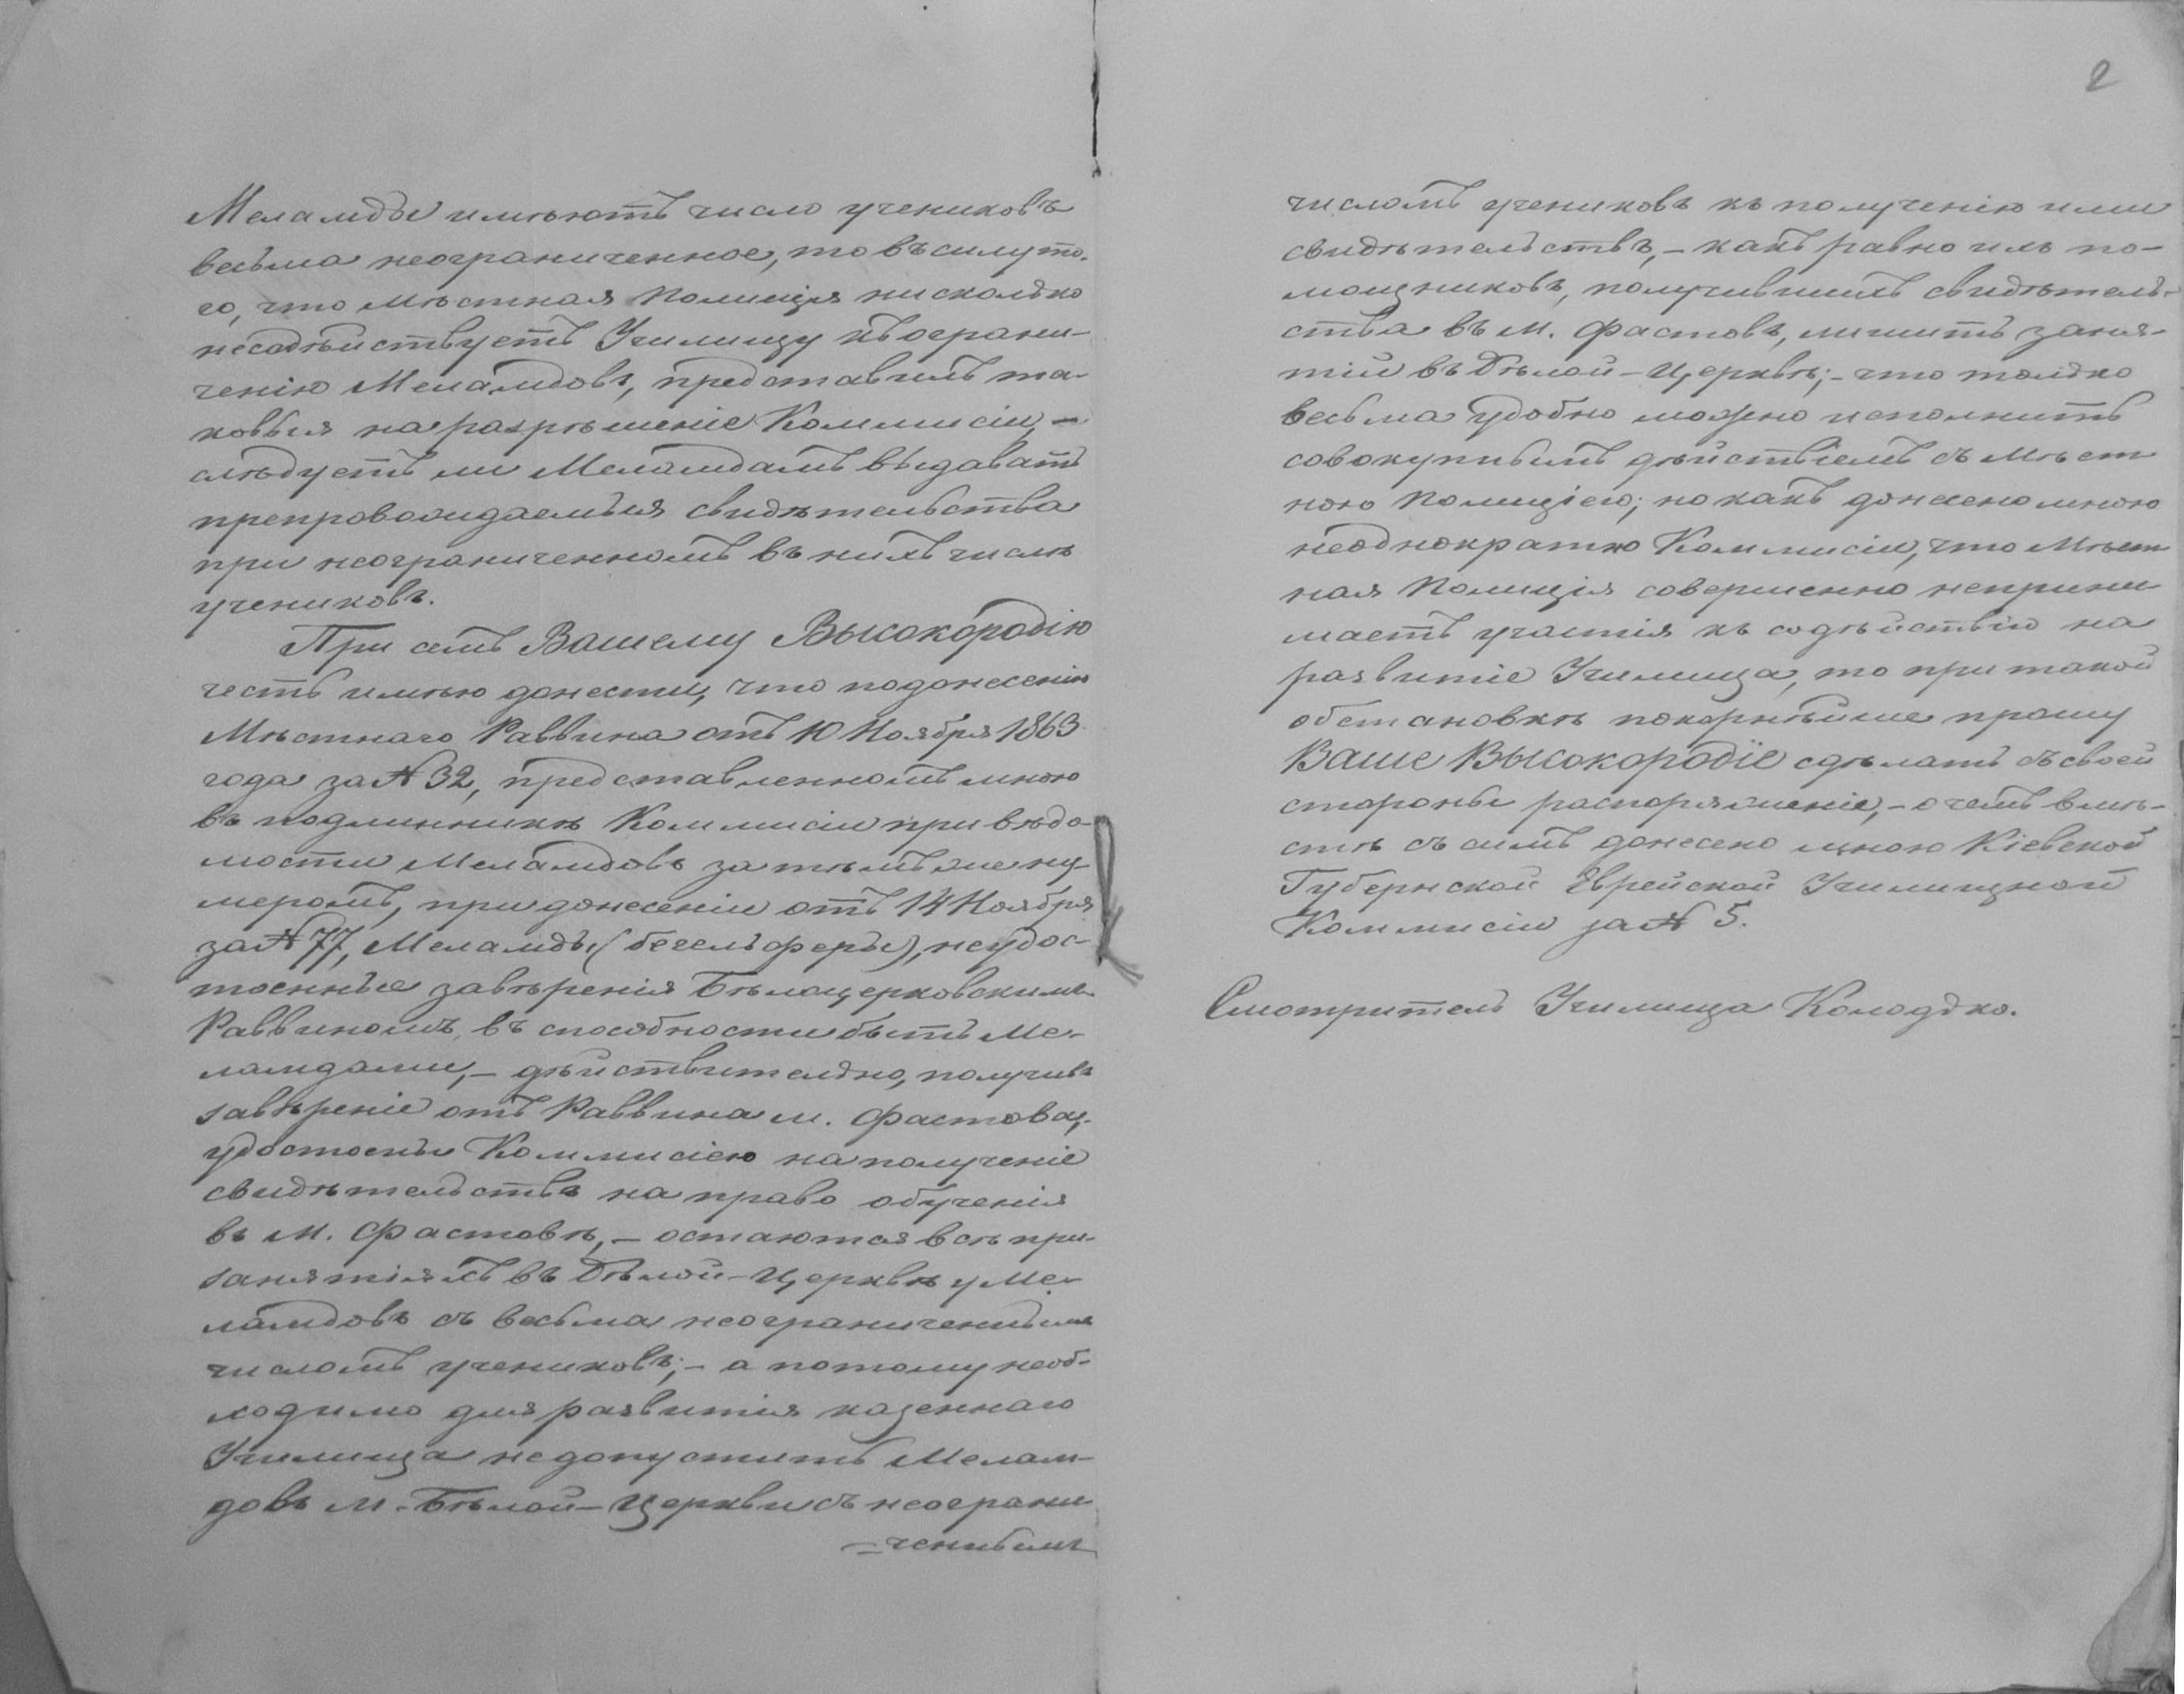 Меламды имѣютъ число учениковъ
весьма неограниченное, то въ силу то-
го, что Мѣстная Полиція нисколько
несодѣйствуетъ Училищу къ ограни-
ченію Меламдовъ, представилъ та-
ковыя на разрѣшеніе Коммисіи, –
слѣдуетъ ли Меламдамъ выдавать
препровождаемыя свидѣтельства
при неограниченномъ въ нихъ числѣ
учениковъ.
При семъ Вашему Высокородію
честь имѣю донести, что по донесенію
Мѣстнаго Раввина отъ 10 Ноября 1863
года за № 32, представленномъ мною
въ подлинникѣ Коммисіи при вѣдо-
мости Меламдовъ за тѣмъ же ну-
меромъ, при донесеніи отъ 14 Ноября
за № 77, Меламды (бегельферы), неудос-
тоенные завѣренія Бѣлоцерковскимъ
Раввиномъ, въ способности быть Ме-
ламдами, – дѣйствительно, получивъ
завѣреніе отъ Раввина м. Фастова,
удостоены Коммисіею на полученіе
свидѣтельствъ на право обученія
въ М. Фастовѣ, – остаются всѣ при
занятіяхъ въ Бѣлой-Церквѣ у Ме-
ламдовъ съ весьма неограниченнымъ
числомъ учениковъ; – а потому необ-
ходимо для развитія казеннаго
Училища недопустить Мелам-
довъ М. Бѣлой-Церкви съ неограни
=ченнымъ
2
числомъ учениковъ къ полученію ими
свидѣтельствъ, – какъ равно и ихъ по-
мощниковъ, получившихъ свидѣтель-
ства въ м. Фастовѣ, лишить заня-
тій въ Бѣлой-Церквѣ; – что только
весьма удобно можно исполнить
совокупнымъ дѣйствіемъ съ Мѣст
ною Полиціею; но какъ донесено мною
неоднократно Коммисіи, что Мѣст
ная Полиція совершенно неприни
маетъ участія къ содѣйствію на
развитіе Училища, то при такой
обстановкѣ покорнѣйше прошу
Ваше Высокородіе сдѣлать съ своей
стороны распоряженіе, – о чемъ вмѣ-
стѣ съ симъ донесено мною Кіевской
Губернской Еврейской Училищной
Коммисіи за № 5.
Смотритель Училища Колодко.